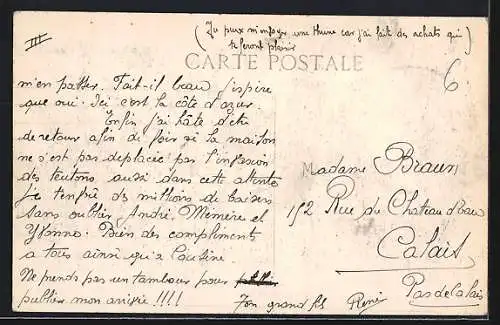 III
(Tu peux m'envoyer une thune car j'ai fait des achats qui
te feront plaisir
CARTE POSTALE
6
m'en passer. Fait-il beau j'espère
que oui. Ici c'est la côte d'azur.
Enfin j'ai hâte d'être
de retour afin de voir si la maison
ne s'est pas déplacée par l'invasion
des teutons aussi dans cette attente
je t'envoie des millions de baisers
sans oublier André, Mémère et
Yvonne. Bien des compliments
a tous ainsi qu'a
Ne prends pas un tambour pour
publier mon arrivée !!!!
Ton grand fils René
Madame Braun
152 Rue du Chateau d'eau
Calais
Pas de Calais